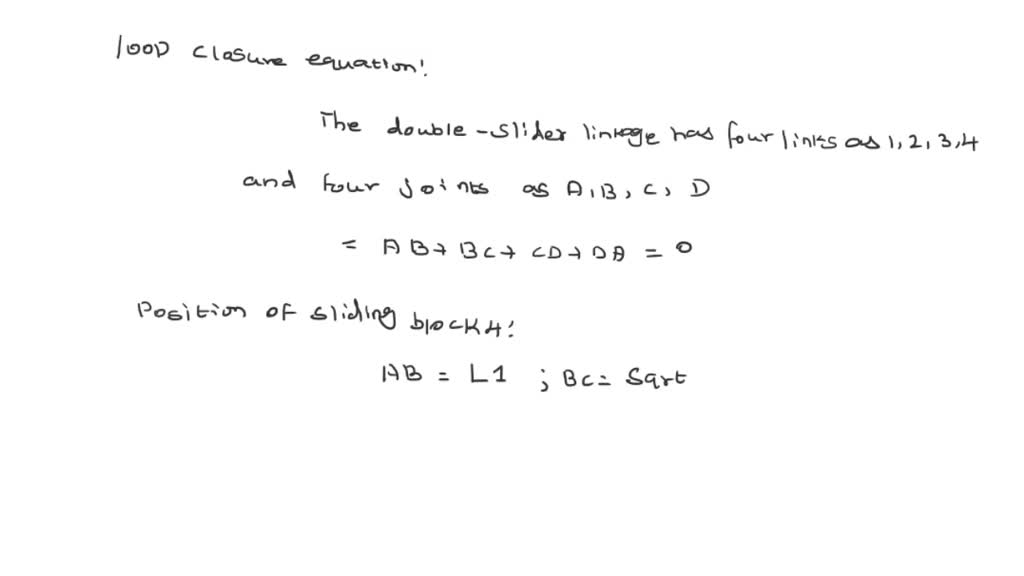 loop closure equation!
The double-slider linkage has four links as 1, 2, 3, 4
and four joints as A, B, C, D
= AB + BC + CD + DA = 0
Position of sliding block 4!
AB = L1 ; BC = Sqrt